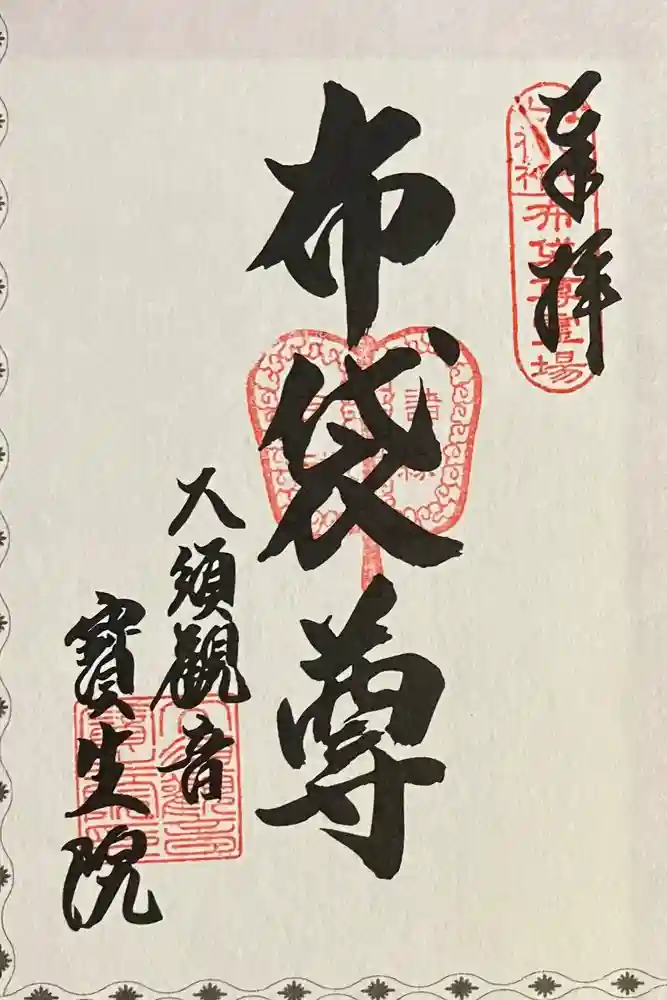 奉拝
布袋尊
大須観音
寳生院
布袋尊霊場
諸縁